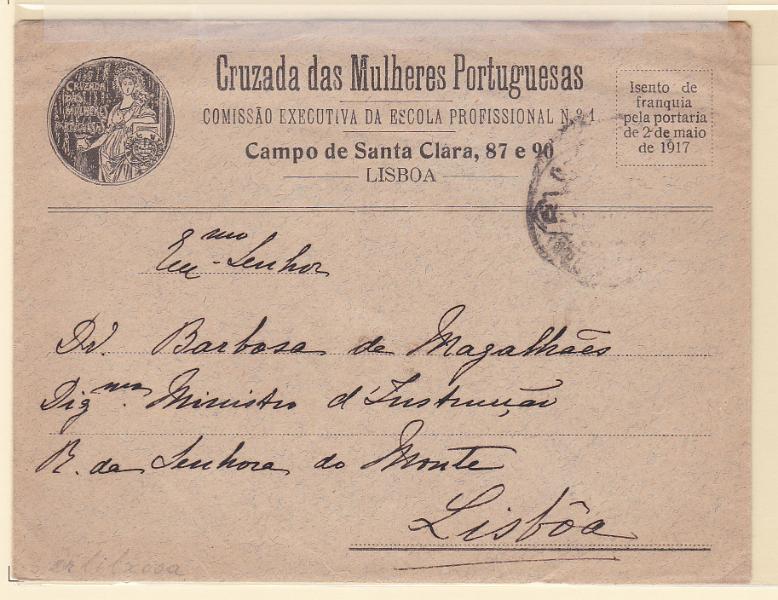 CRUZADA
DAS
MULHERES
PORTUGUESAS
Cruzada das Mulheres Portuguesas
COMISSÃO EXECUTIVA DA ESCOLA PROFISSIONAL N.º 1
Campo de Santa Clara, 87 e 90
LISBOA
Isento de
franquia
pela portaria
de 2 de maio
de 1917
Exmo Senhor
Dr. Barbosa de Magalhães
Digmo. Ministro d'Instrução
R. da Senhora do Monte
Lisbôa